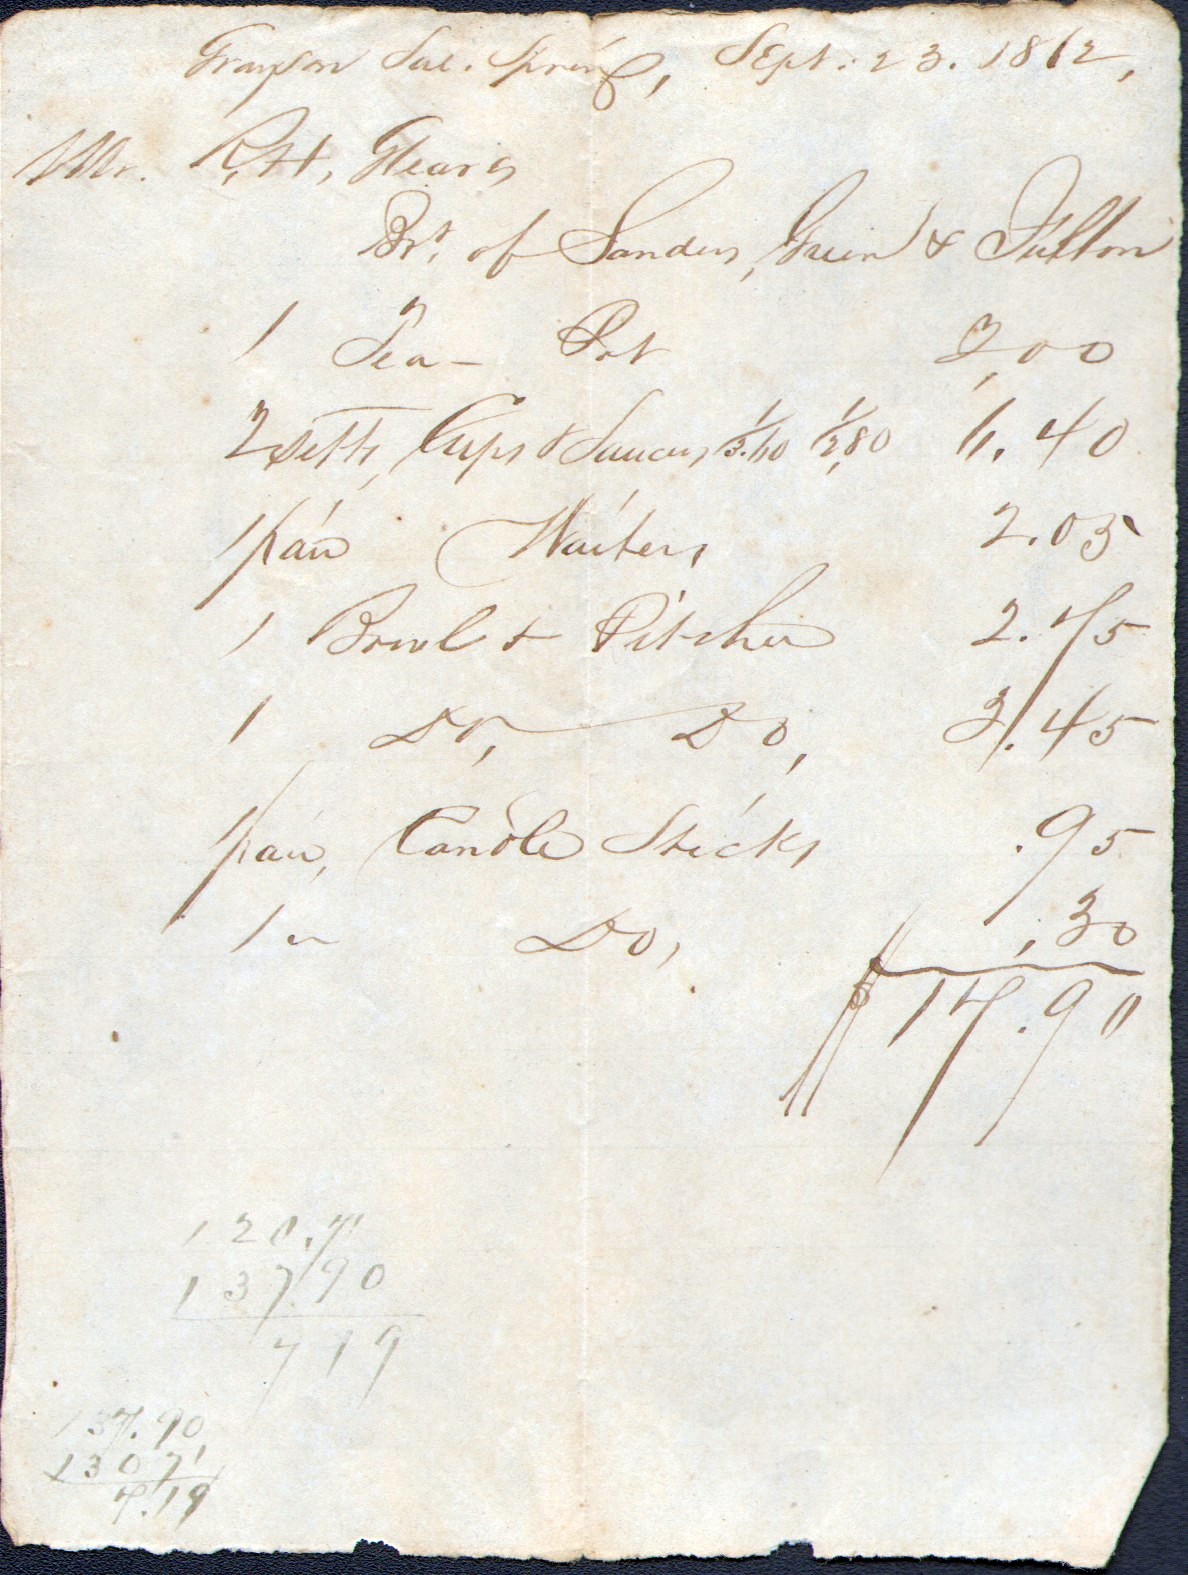 Grayson Sul. Spring, Sept. 23. 1862,
Mr. R, H, Stearns
Bot. of Sanders, Green & Fulton
1 Tea- Pot 3,00
2 setts, Cups & Saucers 1/3.60 1/2,80 6.40
1 pair Waiters 2.05
1 Bowl & Pitcher 2.75
1 Do, Do, 2.45
1 pair, Candle Sticks .95
1 " Do, ,30
$17.90
120.71
137.90
719
137.90
13071
7.19